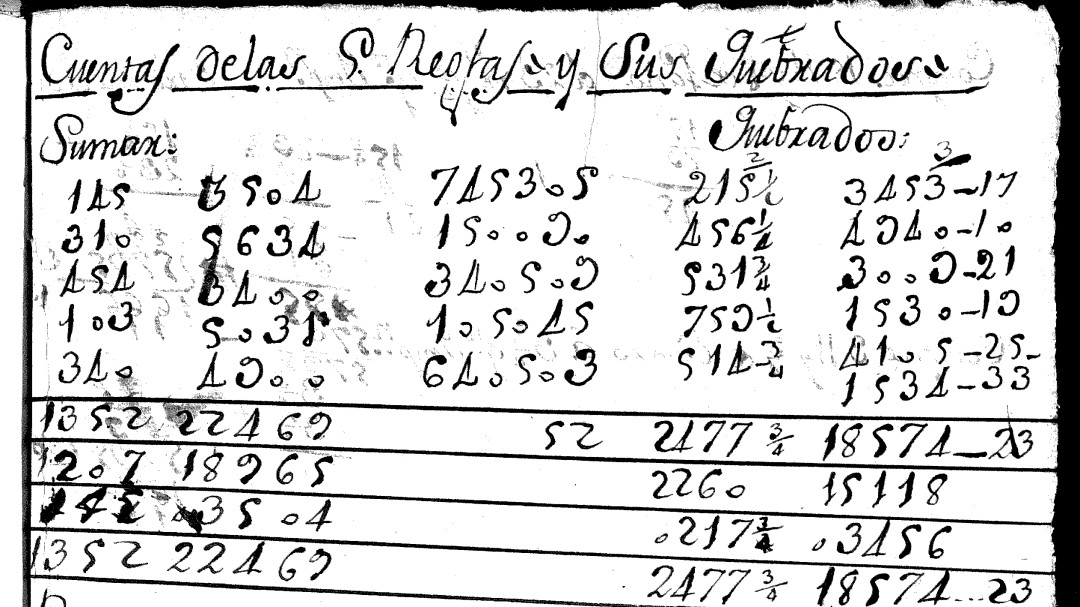 Cuentas delas 5. Reglas y Sus Quebrados.
Sumar: Quebrados:
2 3
145 3504 745305 215½ 3453-17
310 5634 150090 456¼ 4940-10
454 3400 340509 531¾ 3009-21
103 5031 105045 759½ 1530-19
340 4900 640503 514-¾ 4105-25-
1534-33
1352 22469 52 2477¾ 18574-23
1207 18965 2260 15118
145 .3504 .217¾ .3456
1352 22469 2477¾ 18574...23